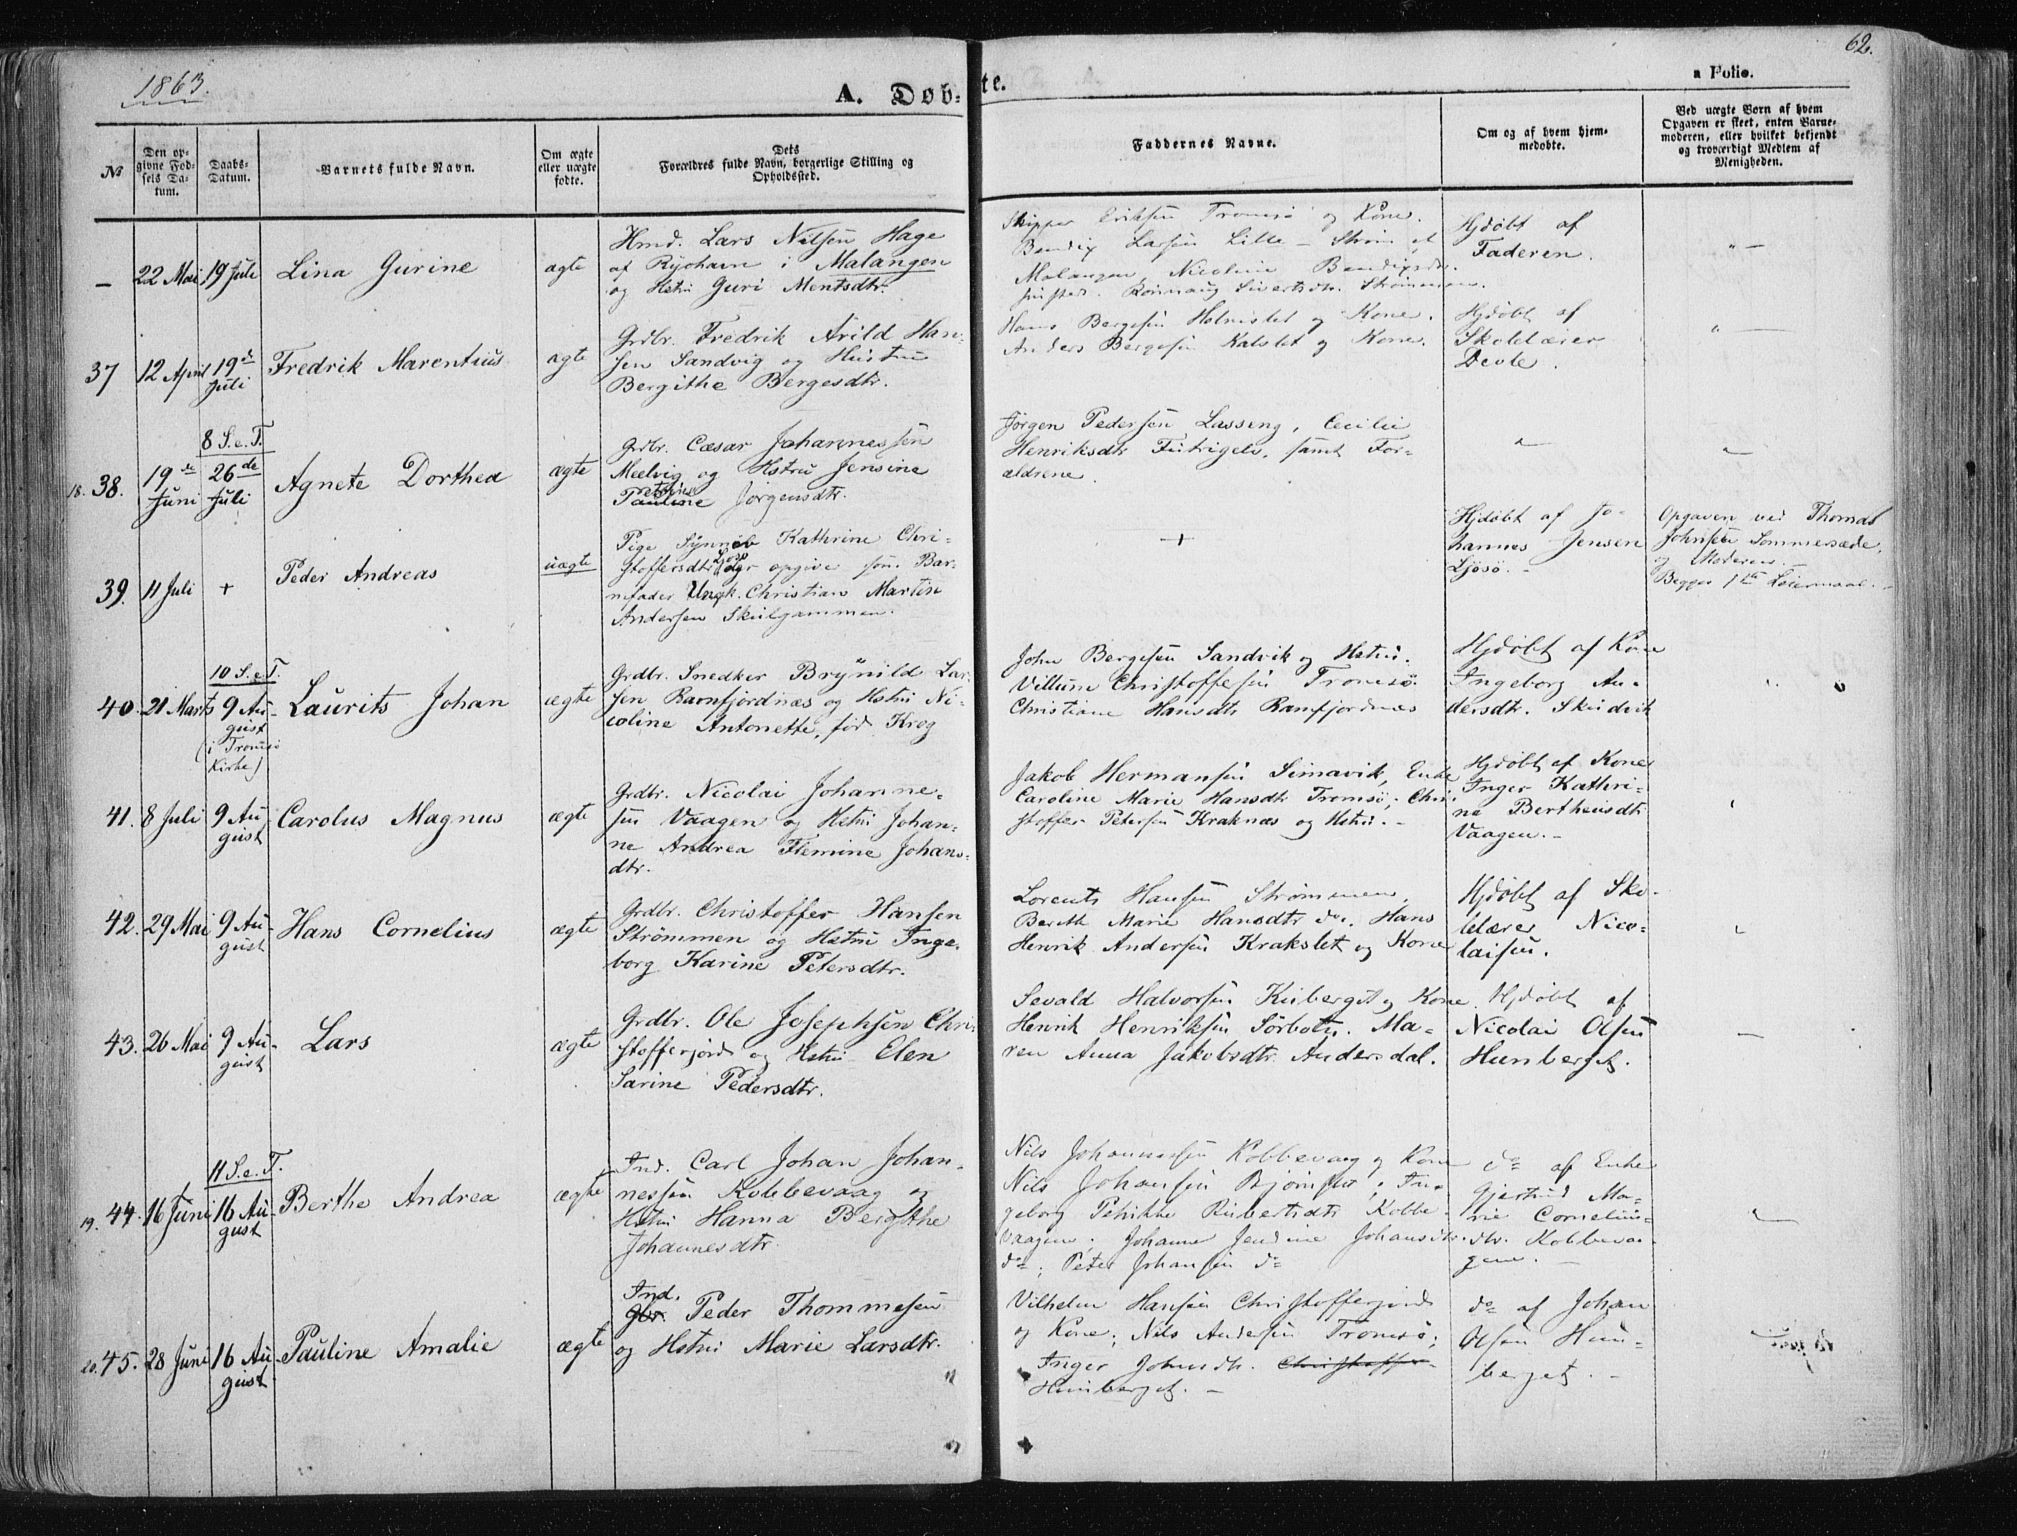 1863.
62.
A. Døb-te.
a Folio.
№
Den opgivne Fødsels Datum.
Daabs-Datum.
Barnets fulde Navn.
Om ægte eller uægte fødte.
Dets Forældres fulde Navn, borgerlige Stilling og Opholdssted.
Faddernes Navne.
Om og af hvem hjemmedøbte.
Ved uægte Børn af hvem Opgaven er skeet, enten Barnemoderen, eller hvilket bekjendt og troværdigt Medlem af Menigheden.
–
22 Mai
19 Juli
Lina Gurine
ægte
Hmd. Lars Nilsen Hage
af Ryøhavn i Malangen
og Hstru Guri Mentsdtr.
Skipper Eriksen Tromsø og Kone.
Bendix Larsen Lille-Strøm af
Malangen, Nicoline Bendixsdtr.
Sivertsdtr. Strømmen.
Hjdøbt af
Faderen.
" –
37
12 April
19de
Juli
Fredrik Marentius
ægte
Grdbr. Fredrik Arild Han-
sen Sandvig og Hustru
Bergithe Bergesdtr.
Hans Bergesen Holmslet og Kone.
Anders Bergesen Kalslet og Kone.
Hjdøbt af
Skolelærer
Devle.
" –
18. 38.
19de
Juni
8 S. e. T.
26de
Juli
Agnete Dorthea
ægte
Grdbr. Cæsar Johannessen
Meelvig og Hstru Jensine
Pauline Jørgensdtr.
Jørgen Pedersen Lasseng, Cecilie
Henriksdtr Futrigelv, samt For-
ældrene.
"
"
39.
11 Juli
+
Peder Andreas
uægte
Pige Synnøv Kathrine Chri-
stoffersdtr Ljøsø og opgive som Bar-
nefader Ungk. Christian Martin
Andersen Skulgammen.
+
Hjdøbt af Jo-
hannes Jensen
Ljøsø. –
Opgaven ved Thomas
Johnsen Sommersæde,
og Moderen.
Begges 1ste Leiermaal. –
40.
21 Marts
10 S. e. T.
9 Au-
gust
(i Tromsø
Kirke)
Laurits Johan
ægte
Grdbr. Snedker Brynild Lar-
sen Ramfjordnæs og Hstru Ni-
coline Antonette, fød Krog
John Bergesen Sandvik og Hstru.
Villum Christoffersen Tromsø.
Christiane Hansdtr Ramfjordnæs
Hjdøbt af Kone
Ingeborg An-
dersdtr. Skudvik
"
41.
8 Juli
9 Au-
gust
Carolus Magnus
ægte
Grdbr. Nicolai Johanne-
sen Vaagen og Hstru Johan-
ne Andrea Flemine Johans-
dtr.
Jakob Hermansen Simavik, Enke
Caroline Marie Hansdtr Tromsø; Chri-
stoffer Petersen Kraknæs og Hstru. –
Hjdøbt af Kone
Inger Kathri-
ne Bertheusdtr
Vaagen. –
"
42.
29 Mai
9 Au-
gust
Hans Cornelius
ægte
Grdbr. Christoffer Hansen
Strømmen og Hstru Inge-
borg Karine Petersdtr.
Lorents Hansen Strømmen,
Berith Marie Hansdtr do. Hans
Henrik Andersen Krakslet og Kone
Hjdøbt af Sko-
lelærer Nico-
laisen.
"
43.
26 Mai
9 Au-
gust
Lars
ægte
Grdbr. Ole Josephsen Chri-
stofferjord og Hstru Elen
Sarine Pedersdtr.
Sevald Halvorsen Kuberget og Kone
Henrik Henriksen Sørbotn. Ma-
ren Anna Jakobsdtr. Andersdal.
Hjdøbt af
Nicolai Olsen
Hunberget.
–
19. 44.
16 Juni
11 S. e. T.
16 Au-
gust
Berthe Andrea
ægte
Ind. Carl Johan Johan-
nessen Kobbevaag og
Hstru Hanna Bergithe
Johannesdtr.
Nils Johannessen Kobbevaag og Kone
Nils Johansen; In-
geborg Rubertsdtr Kobbe-
vaagen; Johanne Jensine Johansdtr.
do; Peter Johansen do
do af Enke
Gjertrud Ma-
rie Cornelius-
dtr. Kobbevaa-
gen. –
"
20. 45.
28 Juni
16 Au-
gust
Pauline Amalie
ægte
Ind.
Gbr. Peder Thommesen
og Hstru Marie Larsdtr.
Vilhelm Hansen Christofferjord
og Kone; Nils Andersen Tromsø;
Inger Johnsdtr. Christoffer-
Hunberget. –
do af Johan
Olsen Hun-
berget. –